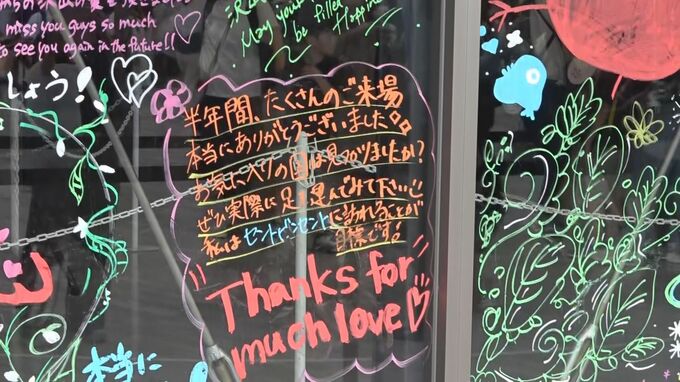 miss you guys so much
to see you again in the future!!
May your
be filled
Happiness
しょう!
半年間、たくさんのご来場
本当にありがとうございました
お気に入りの国は見つかりましたか?
ぜひ実際に足を運んでみて下さい
私はセントビンセントに訪れることが
目標です!
Thanks for
much love
本当に